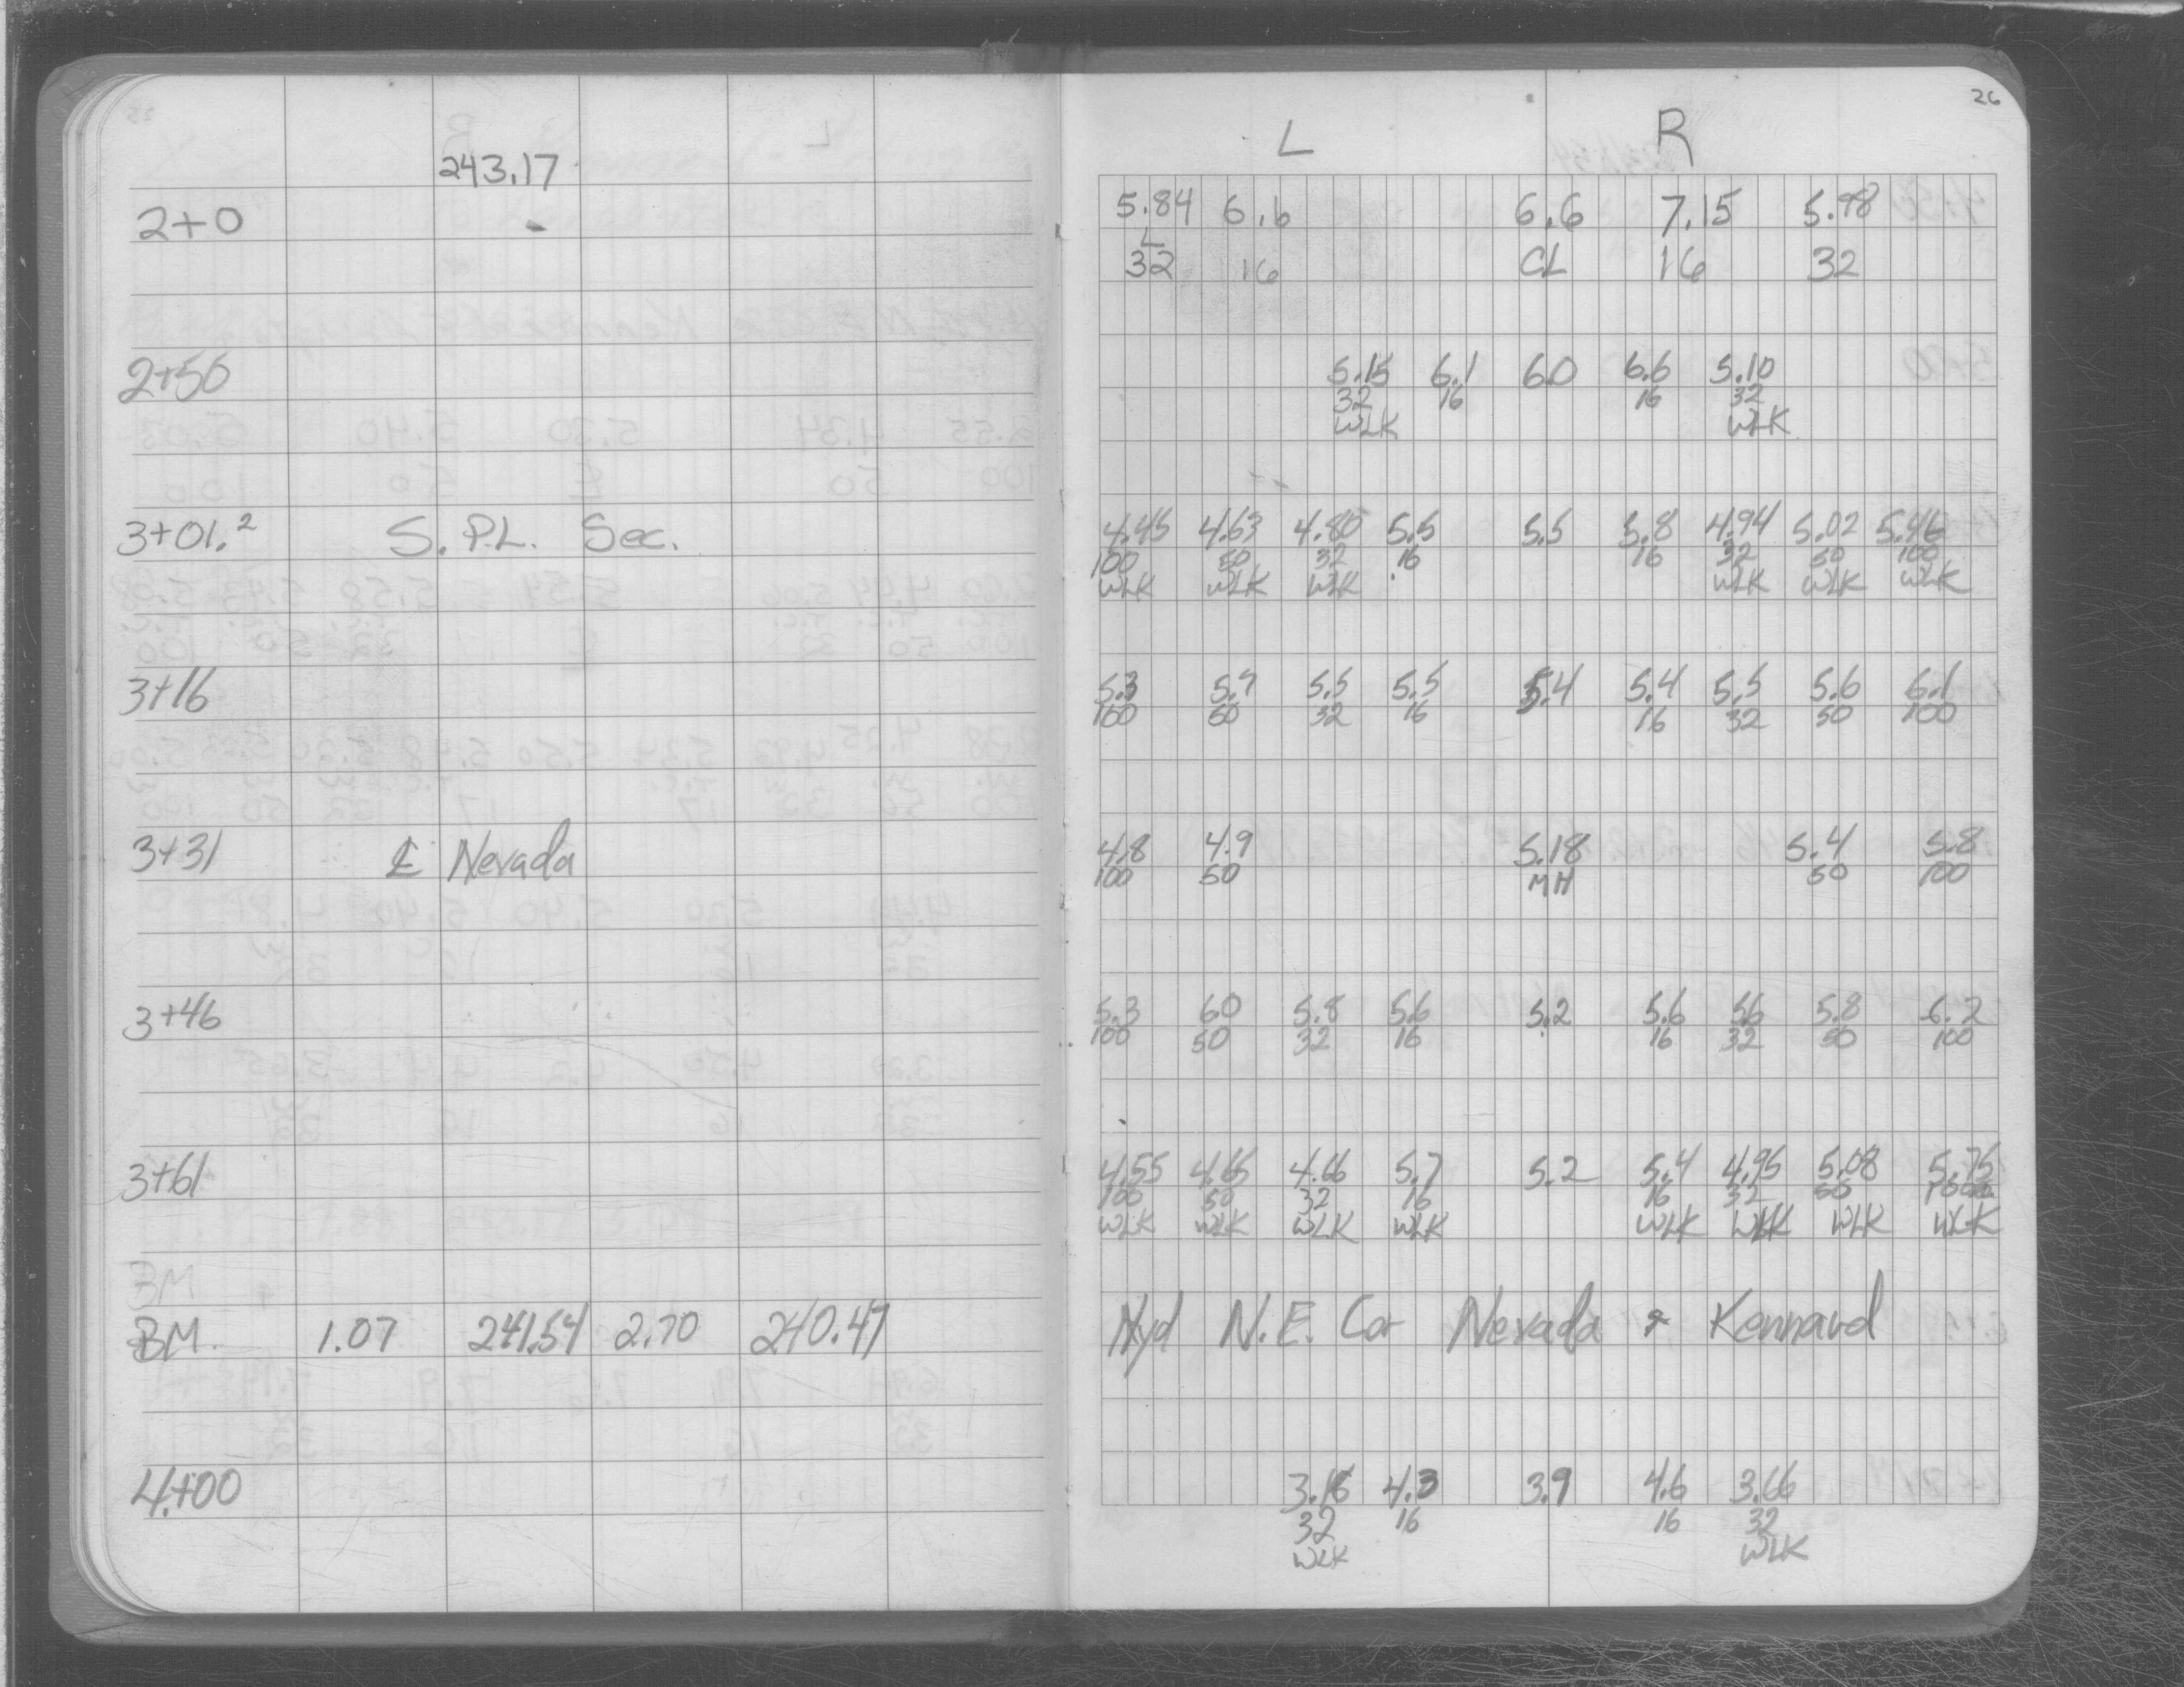 26
L R
243.17
2+0 5.84 6.6 6.6 7.15 5.98
L
32 16 CL 16 32
2+50 5.15 6.1 6.0 6.6 5.10
32 16 16 32
WLK WLK
3+01.2 S. P.L. Sec. 4.45 4.63 4.80 5.5 5.5 5.8 4.94 5.02 5.46
100 50 32 16 16 32 50 100
WLK WLK WLK WLK WLK WLK
3+16 5.3 5.7 5.5 5.5 5.4 5.4 5.5 5.6 6.1
100 50 32 16 16 32 50 100
3+31 ℄ Nevada 4.8 4.9 5.18 5.4 5.8
100 50 MH 50 100
3+46 5.3 6.0 5.8 5.6 5.2 5.6 5.6 5.8 6.2
100 50 32 16 16 32 50 100
3+61 4.55 4.65 4.66 5.7 5.2 5.4 4.95 5.08 5.75
100 50 32 16 16 32 50 100
WLK WLK WLK WLK WLK WLK WLK WLK
BM
BM. 1.07 241.54 2.70 240.47 Hyd N.E. Cor Nevada & Kennard
4+00 3.16 4.3 3.9 4.6 3.66
32 16 16 32
WLK WLK